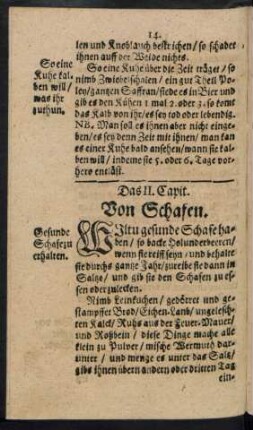 14.
len und Knoblauch bestrichen / so schadet
ihnen auff der Weide nichts.
So eine Kuhe kal-
ben will /
was ihr
zuthun.
So eine Kuhe über die Zeit träget / so
nimb Zwiebelschalen / ein gut Theil Po-
ley / gantzen Saffran / siede es in Bier und
gib es den Kühen 1 mal 2. oder 3. so komt
das Kalb von ihr / es sey tod oder lebendig.
NB. Man soll es ihnen aber nicht einge-
ben / es sey denn Zeit mit ihnen / man kan
es einer Kuhe bald ansehen / wann sie kal-
ben will / indeme sie 5. oder 6. Tage vor-
hero entläst.
Das II. Capit.
Von Schafen.
Gesunde
Schafe zu
erhalten.
WIltu gesunde Schafe ha-
ben / so backe Holunderbeeren /
wenn sie reiff seyn / und behalte
sie durchs gantze Jahr / zureibe sie dann in
Saltz / und gib sie den Schafen zu es-
sen oder zulecken.
Nimb Leinkuchen / gedörret und ge-
stampffet Brod / Eichen-Laub / ungelösch-
ten Kalck / Ruhs aus der Feuer-Mauer /
und Roßbein / diese Dinge mache alle
klein zu Pulver / mische Wermuth dar-
unter / und menge es unter das Saltz /
gibs ihnen übern andern oder dritten Tag
ein-